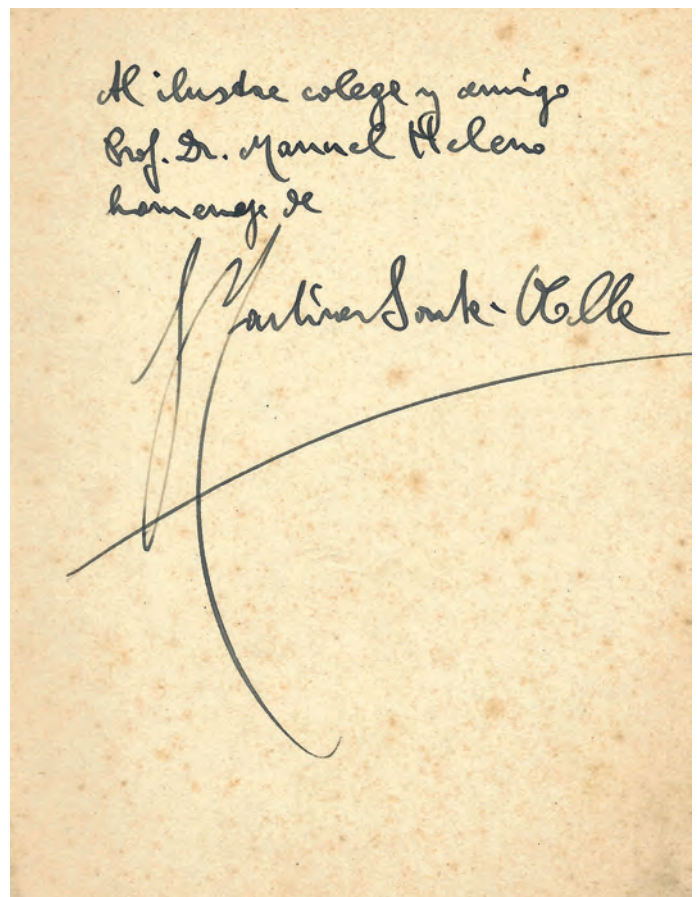 Al ilustre colega y amigo
Prof. Dr. Manuel Heleno
homenaje de
Martínez Santa-Olalla